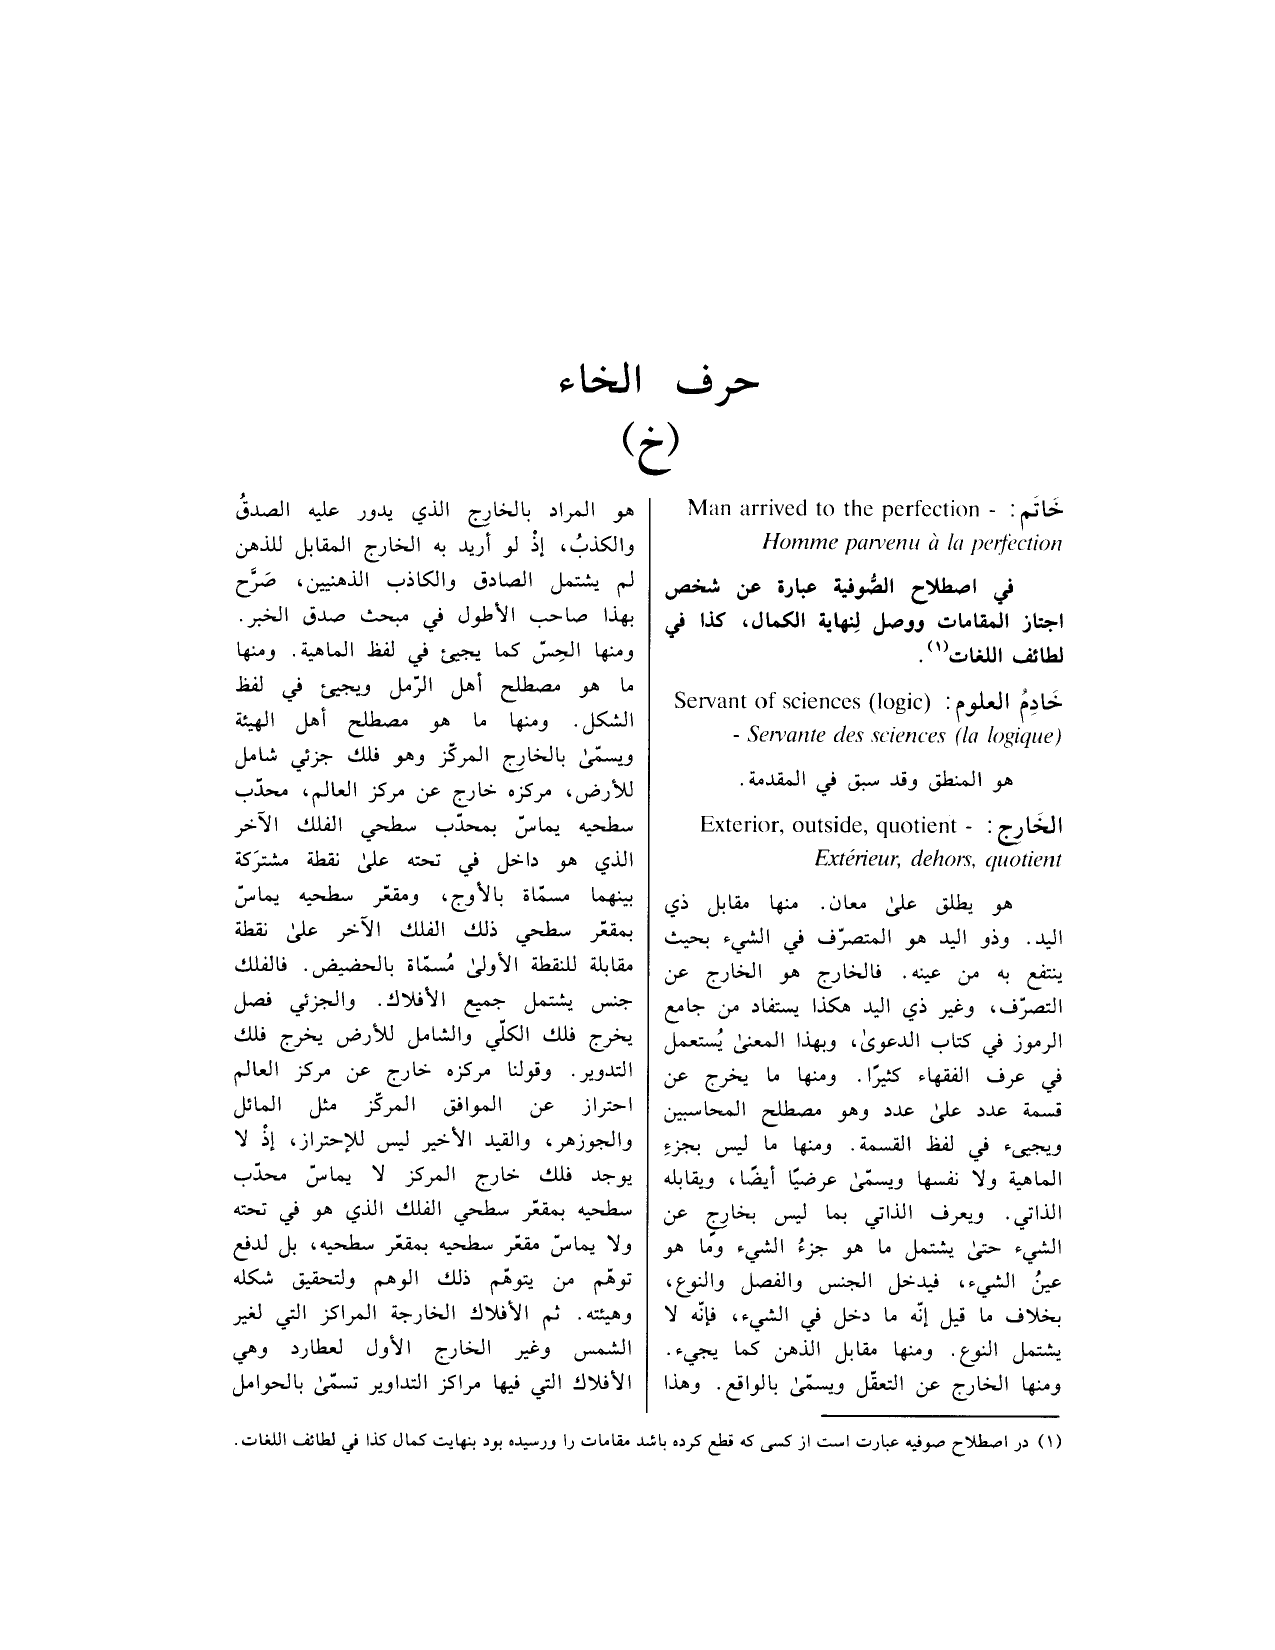 حرف الخاء
(خ)
خَاتَم: - Man arrived to the perfection
Homme parvenu à la perfection
في اصطلاح الصُّوفية عبارة عن شخص
اجتاز المقامات ووصل لِنهاية الكمال، كذا في
لطائف اللغات(١).
خَادِمُ العلوم: Servant of sciences (logic)
- Servante des sciences (la logique)
هو المنطق وقد سبق في المقدمة.
الخَارِج: - Exterior, outside, quotient
Extérieur, dehors, quotient
هو يطلق علىٰ معان. منها مقابل ذي
اليد. وذو اليد هو المتصرّف في الشيء بحيث
ينتفع به من عينه. فالخارج هو الخارج عن
التصرّف، وغير ذي اليد هكذا يستفاد من جامع
الرموز في كتاب الدعوىٰ، وبهذا المعنىٰ يُستعمل
في عرف الفقهاء كثيرًا. ومنها ما يخرج عن
قسمة عدد علىٰ عدد وهو مصطلح المحاسبين
ويجيىء في لفظ القسمة. ومنها ما ليس بجزءِ
الماهية ولا نفسها ويسمّىٰ عرضيًا أيضًا، ويقابله
الذاتي. ويعرف الذاتي بما ليس بخارجٍ عن
الشيء حتىٰ يشتمل ما هو جزءُ الشيء وما هو
عينُ الشيء، فيدخل الجنس والفصل والنوع،
بخلاف ما قيل إنّه ما دخل في الشيء، فإنّه لا
يشتمل النوع. ومنها مقابل الذهن كما يجيء.
ومنها الخارج عن التعقّل ويسمّىٰ بالواقع. وهذا
هو المراد بالخارِج الذي يدور عليه الصدقُ
والكذبُ، إذْ لو أريد به الخارج المقابل للذهن
لم يشتمل الصادق والكاذب الذهنيين، صَرَّح
بهذا صاحب الأطول في مبحث صدق الخبر.
ومنها الحِسّ كما يجيئ في لفظ الماهية. ومنها
ما هو مصطلح أهل الرّمل ويجيئ في لفظ
الشكل. ومنها ما هو مصطلح أهل الهيئة
ويسمّىٰ بالخارِج المركّز وهو فلك جزئي شامل
للأرض، مركزه خارج عن مركز العالم، محدّب
سطحيه يماسّ بمحدّب سطحي الفلك الآخر
الذي هو داخل في تحته علىٰ نقطة مشترَكة
بينهما مسمّاة بالأوج، ومقعّر سطحيه يماسّ
بمقعّر سطحي ذلك الفلك الآخر علىٰ نقطة
مقابلة للنقطة الأولىٰ مُسمّاة بالحضيض. فالفلك
جنس يشتمل جميع الأفلاك. والجزئي فصل
يخرج فلك الكلّي والشامل للأرض يخرج فلك
التدوير. وقولنا مركزه خارج عن مركز العالم
احتراز عن الموافق المركّز مثل المائل
والجوزهر، والقيد الأخير ليس للإحتراز، إذْ لا
يوجد فلك خارج المركز لا يماسّ محدّب
سطحيه بمقعّر سطحي الفلك الذي هو في تحته
ولا يماسّ مقعّر سطحيه بمقعّر سطحيه، بل لدفع
توهّم من يتوهّم ذلك الوهم ولتحقيق شكله
وهيئته. ثم الأفلاك الخارجة المراكز التي لغير
الشمس وغير الخارج الأول لعطارد وهي
الأفلاك التي فيها مراكز التداوير تسمّىٰ بالحوامل
(١) در اصطلاح صوفيه عبارت است از كسى كه قطع كرده باشد مقامات را ورسيده بود بنهايت كمال كذا في لطائف اللغات.